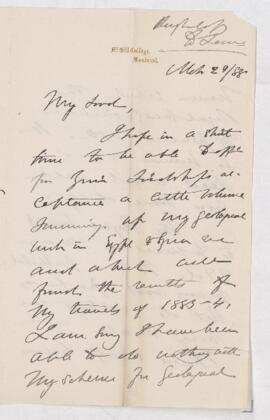 McGill College,
Montreal.
Mch 29/88
My Lord,
I hope in a short
time to be able to offer
for Your Lordship's ac-
ceptance a little volume
summing up my geological
work in Egypt & Syria
and which will
the results of
my travels of 1883-4.
I am sorry I have been
able to do nothing with
my scheme for Geological